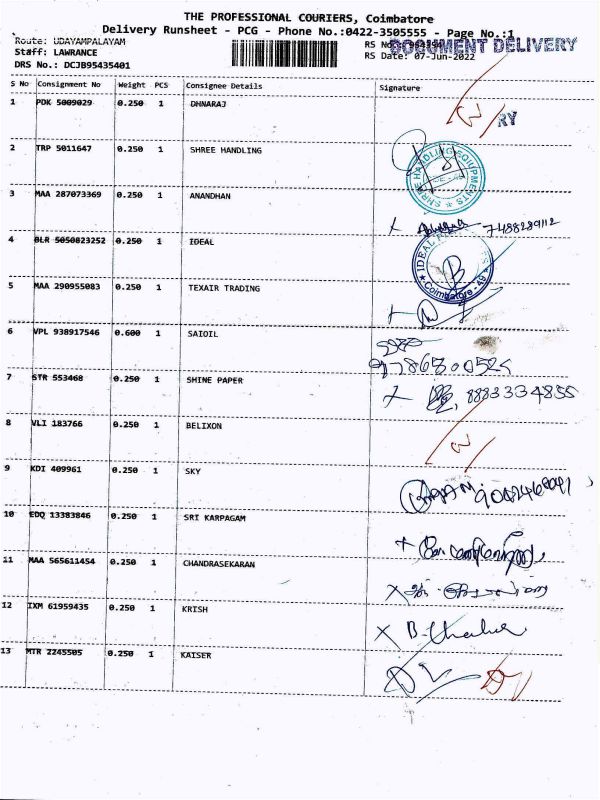 THE PROFESSIONAL COURIERS, Coimbatore
Delivery Runsheet - PCG - Phone No.:0422-3505555 - Page No.:1
Route: UDAYAMPALAYAM
RS No.:
DOCUMENT DELIVERY
Staff: LAWRANCE
RS Date: 07-Jun-2022
DRS No.: DCJB95435401
S No Consignment No Weight PCS Consignee Details Signature
1 PDK 5009029 0.250 1 DHNARAJ
RY
2 TRP 5011647 0.250 1 SHREE HANDLING
SHREE HANDLING EQUIPMENTS
3 MAA 287073369 0.250 1 ANANDHAN
7488289112
4 BLR 5050823252 0.250 1 IDEAL
IDEAL
Coimbatore - 49
5 MAA 290955083 0.250 1 TEXAIR TRADING
6 VPL 938917546 0.600 1 SAIOIL
7 STR 553468 0.250 1 SHINE PAPER
8883334855
8 VLI 183766 0.250 1 BELIXON
9 KDI 409961 0.250 1 SKY
10 EDQ 13383846 0.250 1 SRI KARPAGAM
11 MAA 565611454 0.250 1 CHANDRASEKARAN
12 IXM 61959435 0.250 1 KRISH
13 MTR 2245505 0.250 1 KAISER